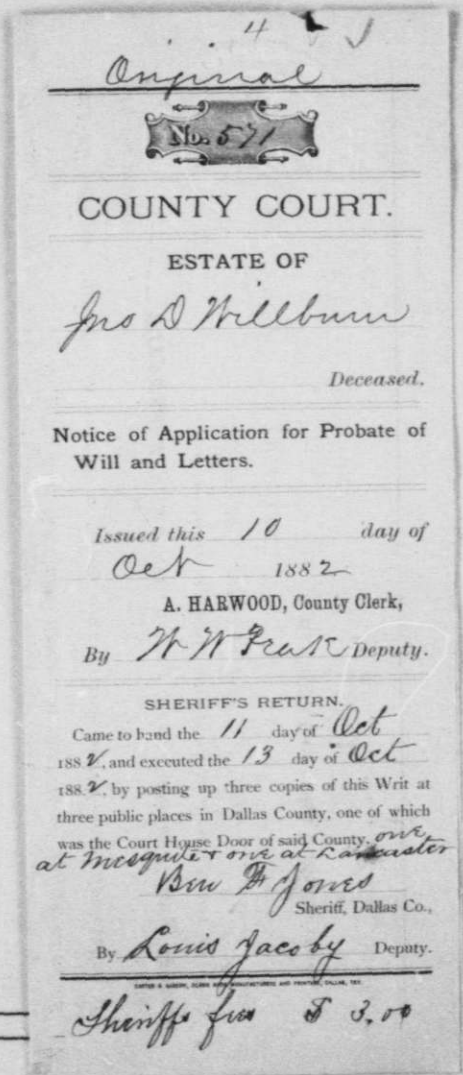 4
Original
No. 571
COUNTY COURT.
ESTATE OF
Jno D Willburn
Deceased.
Notice of Application for Probate of
Will and Letters.
Issued this 10 day of
Oct 1882
A. HARWOOD, County Clerk,
By W W Deputy.
SHERIFF'S RETURN.
Came to hand the 11 day of Oct
1882, and executed the 13 day of Oct
1882, by posting up three copies of this Writ at
three public places in Dallas County, one of which
was the Court House Door of said County, one
at Mesquite & one at Lancaster
Ben F Jones
Sheriff, Dallas Co.,
By Louis Jacoby Deputy.
Sheriffs fees $ 3.00